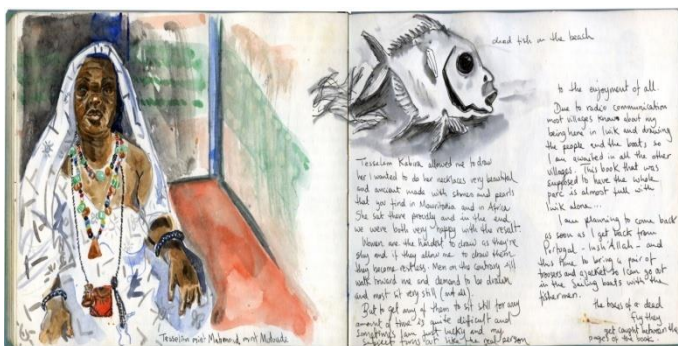 Tessalam mint Mahmoud, mint Mebrada
dead fish on the beach
Tessalam Kabira allowed me to draw
her I wanted to do her necklaces very beautiful
and ancient made with stones and pearls
that you find in Mauritania and in Africa
She sat there proudly and in the end
we were both very happy with the result.
Women are the hardest to draw as they're
shy and if they allow me to draw them
they become restless. Men on the contrary
walk toward me and demand to be drawn
and most sit very still (not all).
But to get any of them to sit still for any
amount of time is quite difficult and
sometimes I am just lucky and my
subject turns out like the real person
to the enjoyment of all.
Due to radio communication
most villages know about my
being here in Iwik and drawing
the people and the boats so
I am awaited in all the other
villages. This book that was
supposed to have the whole
parc is almost full with
Iwik alone...
I am planning to come back
as soon as I get back from
Portugal - Insh'Allah - and
this time to bring a pair of
trousers and a jacket so I can go out
in the sailing boats with the
fishermen.
the traces of a dead
fly they
get caught between the
pages of the book.